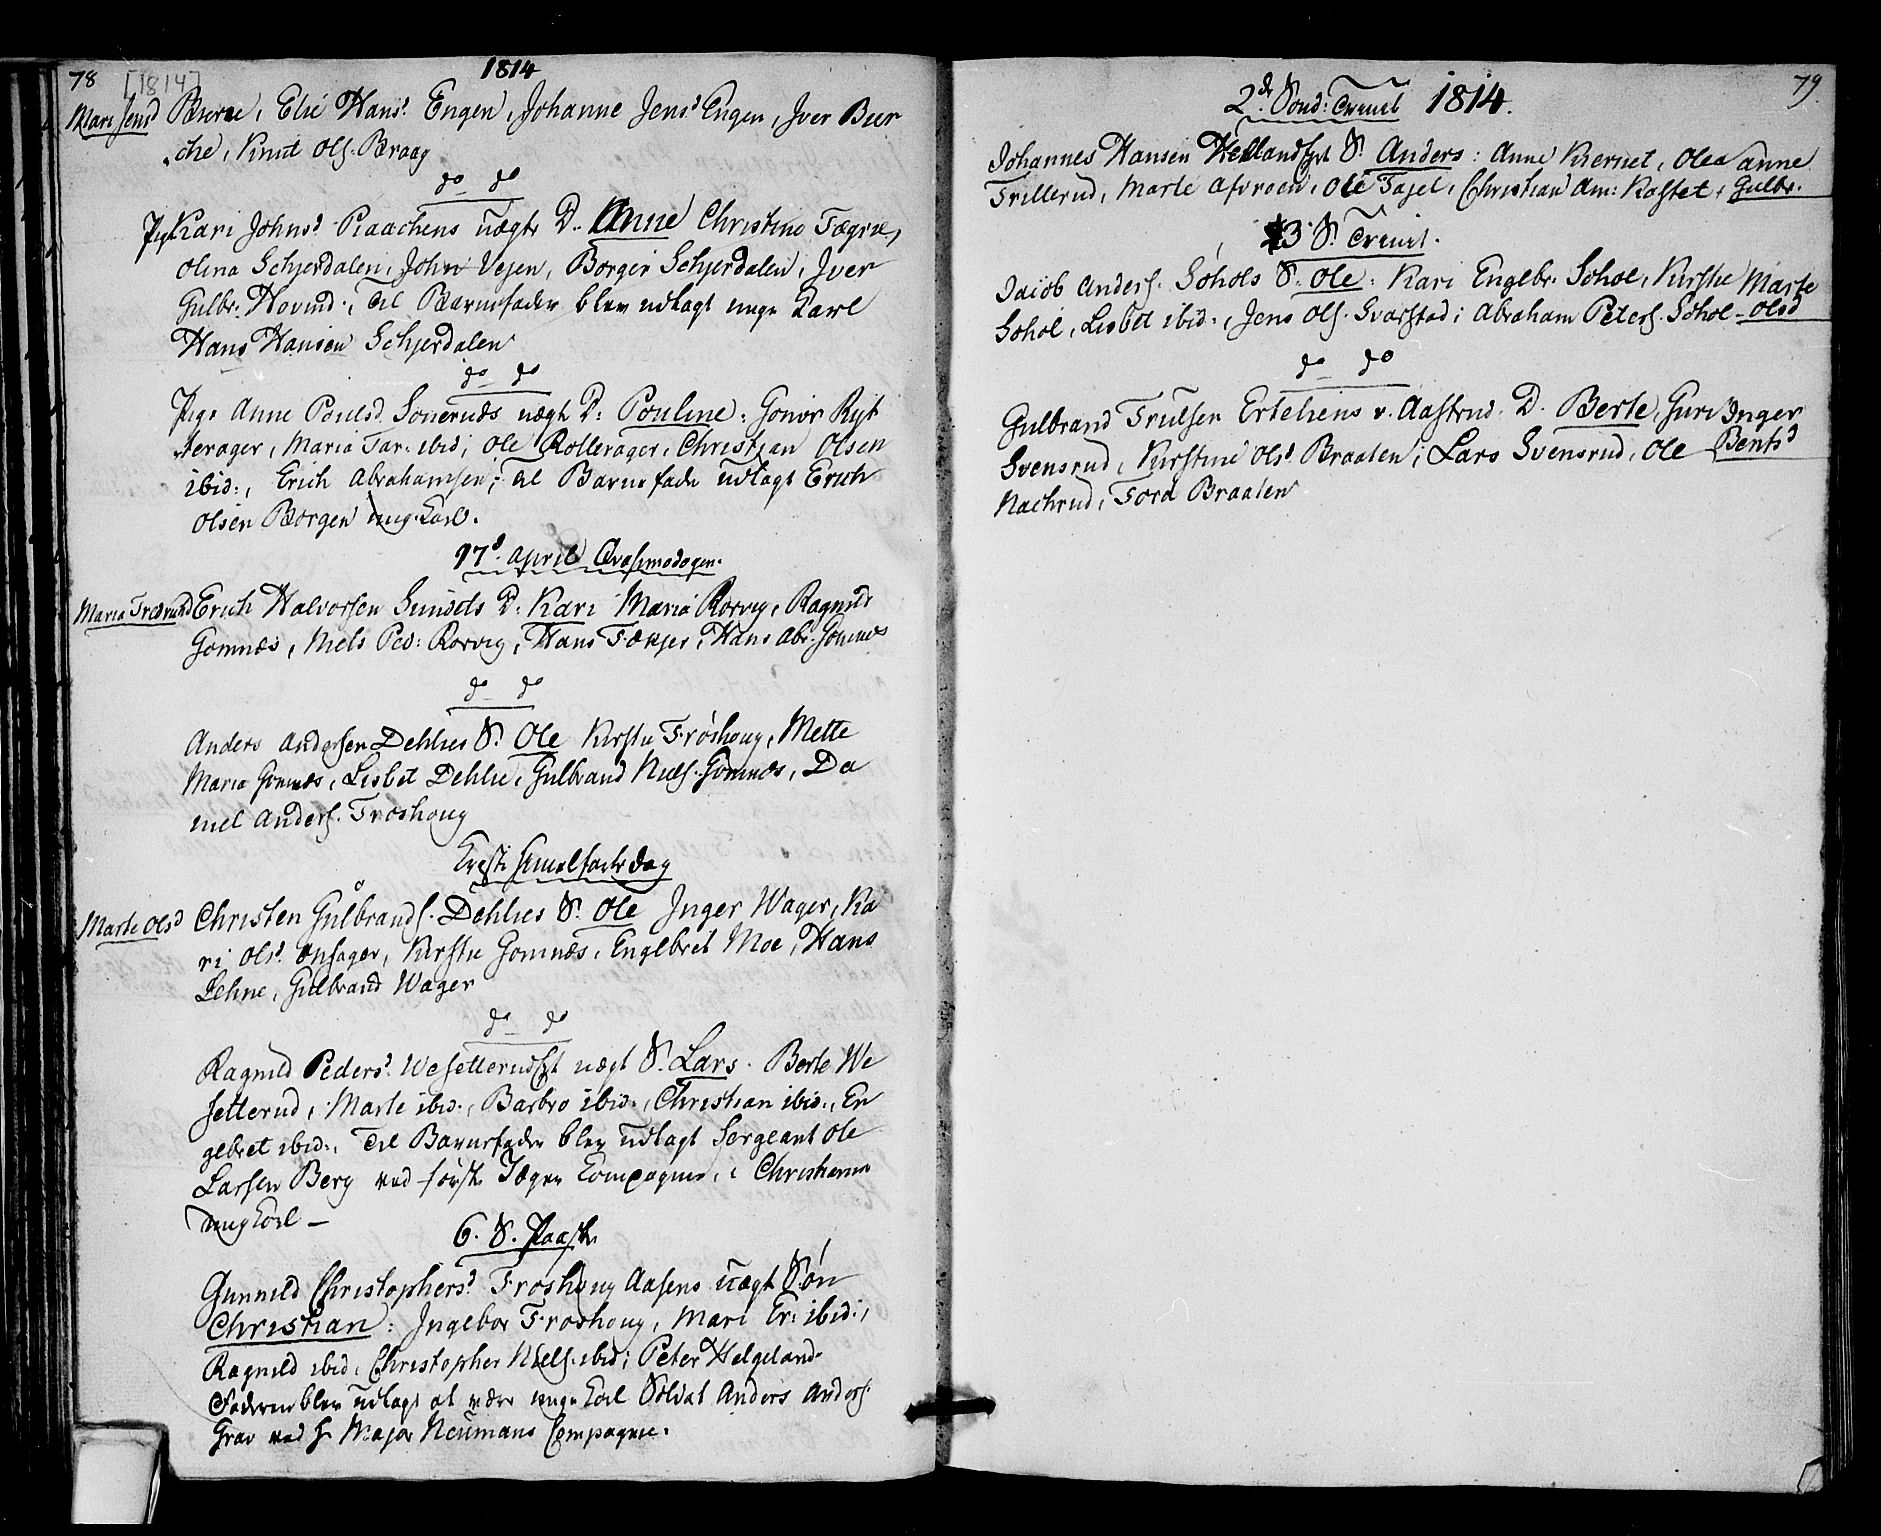 78 [1814] 1814
Mari Jensd Berte, Elie Hansd. Engen, Johanne Jensd Engen, Iver Bier
che, Knud Ols. Braag
do do
Pige Kari Johnsd. Raachens uægte D. Anne Christine Fægrie,
Olina Schjerdalen, John Vejen, Borger Schjerdalen, Iver
Gulbr. Hovind. Til Barnefader blev udlagt unge Karl
Hans Hansen Schjerdalen
do do
Pige Anne Poulsd Soneruds uægt D: Pouline: Gonor Ryt
terager, Maria Tar: ibid; Ole Rolterager, Christian Olsen
ibid:, Erich Abrahamsen; Til Barnefader udlagt Erich
Olsen Borgen ung Karl.
17d. April Qvasimodogen.
Maria Erich Halvorsen D. Kari Maria Rorvig, Ragnild
Gomnæs, Niels Ped: Rorvig, Hans Fækjer, Hans Abr. Gomnæs
do do
Anders Andersen Dehlies S. Ole Kirstie Fröshoug, Mette
Maria Gomnæs, Lisbet Dehlie, Gulbrand Niels. Gomnæs, Da
niel Anders. Froshoug
Christi Himelfarts dag
Marte Olsd Christen Gulbrands. Dehlies S. Ole Inger Wager, Ka
ri Olsd. Onsager, Kirstie Gomnæs, Engebret Moe, Hans
Lehne, Gulbrand Wager
do do
Ragnild Pedersd. Wesetterud uægt S. Lars. Berte We
setterud, Marte ibid., Barbro ibid:, Christian ibid:, En
gebret ibid:, Til Barnefader blev udlagt Sergeant Ole
Larsen Berg ved første Jæger Compagnie, i Christiania
ung Carl —
6. S. Paaske
Gunnild Christophersd. Froshoug Aasens uægt Søn
Christian: Ingebor Froshoug, Mari Er: ibid:,
Ragnild ibid, Christopher Niels. ibid; Peter Helgeland.
Faderen blev udlagt at være unge Carl Soldat Anders Anders.
Grav ved Hr Major Neumans Compagnie.
2d. Sond: Trinit 1814. 79.
Johannes Hansen S. Anders: Anne Kiernet, Olea Anne
Trillerud, Marte Afvroen, Ole Fajel, Christian Am: Kastet, Gulbr.
3 S. Trinit.
Jacob Anders. Sohols S. Ole: Kari Engebr. Sohol, Kirstie Marte
Sohol, Lisbet ibid:, Jens Ols. Svarstad; Abraham Peters. Sohol - Olsd
do do
Gulbrand Trulsen Ertehiens v. Aastrud. D. Berte, Guri Inger
Svensrud, Kirstine Olsd. Braaten; Lars Svensrud, Ole Bentsd
Nachrud, Tord Braaten